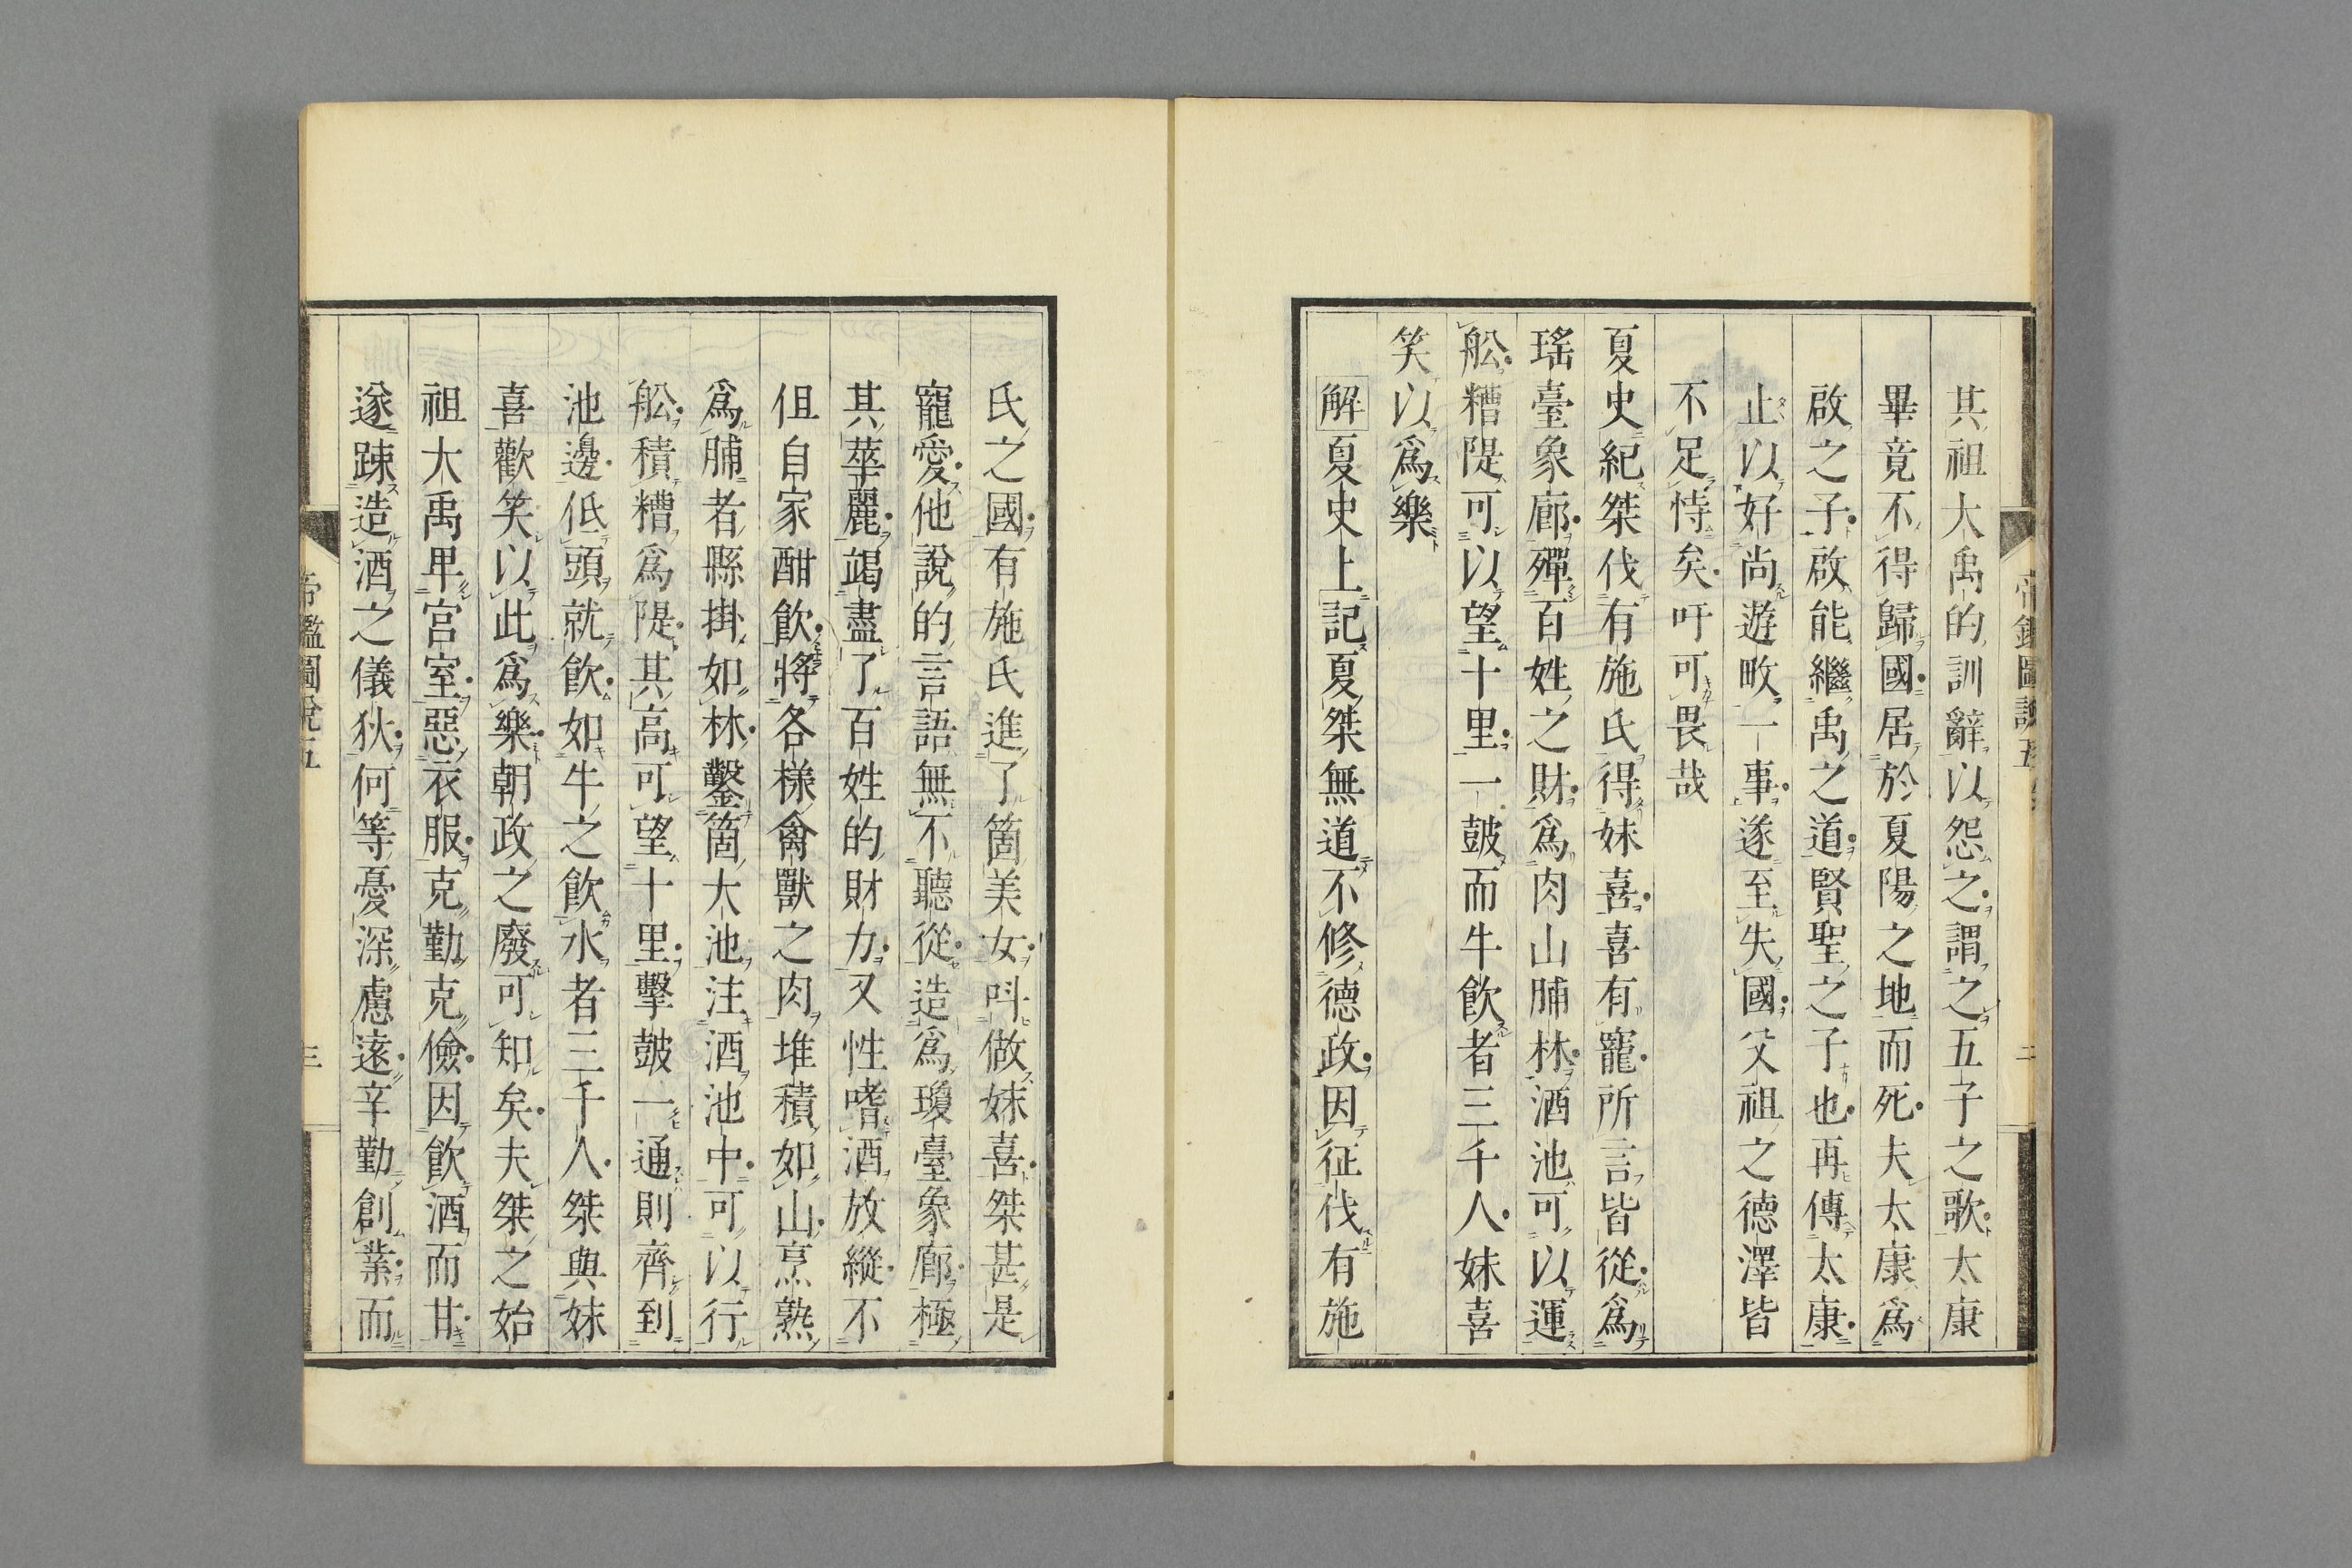 其祖大禹的訓辭以怨之謂之五子之歌太康
畢竟不得歸國居於夏陽之地而死夫太康爲
啟之子啟能繼禹之道賢聖之子也再傳太康
止以好尚遊畋一事遂至失國父祖之德澤皆
不足恃矣吁可畏哉
夏史紀桀伐有施氏得妹喜喜有寵所言皆從爲
瑤臺象廊殫百姓之財爲肉山脯林酒池可以運
舩糟隄可以望十里一皷而牛飲者三千人妹喜
笑以爲樂
解夏史上記夏桀無道不修德政因征伐有施
氏之國有施氏進了箇美女呌做妹喜桀甚是
寵愛他說的言語無不聽從造爲瓊臺象廊極
其華麗竭盡了百姓的財力又性嗜酒放縱不
但自家酣飲將各樣禽獸之肉堆積如山烹熟
爲脯者縣掛如林鑿箇大池注酒池中可以行
舩積糟爲隄其高可望十里擊皷一通則齊到
池邊低頭就飲如牛之飲水者三千人桀與妹
喜歡笑以此爲樂朝政之廢可知矣夫桀之始
祖大禹卑宮室惡衣服克勤克儉因飲酒而甘
遂踈造酒之儀狄何等憂深慮遠辛勤創業而
帝鑑圖說五
三